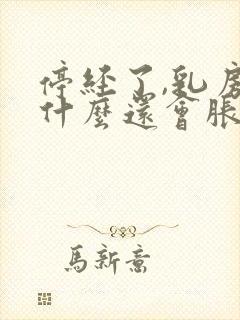 停经了,乳房
什麼還會脹
馬新意